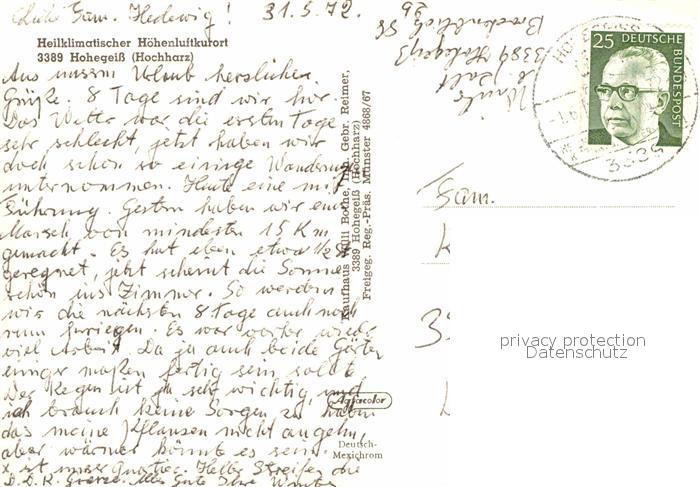 Liebe Fam. Hedewig! 31.5.72.
Heilklimatischer Höhenluftkurort
3389 Hohegeiß (Hochharz)
Aus unserm Urlaub herzlichen
Grüße. 8 Tage sind wir hier.
Das Wetter war die ersten Tage
sehr schlecht, jetzt haben wir
doch schon so einige Wanderung
unternommen. Heute eine mit
Führung. Gestern haben wir ein
Marsch von mindesten 15 Km
gemacht. Es hat eben etwa 1/2 St
geregnet, jetzt scheint die Sonne
schön ins Zimmer. So werden
wir die nächsten 8 Tage auch noch
rum kriegen. Es war vorher wieder
viel Arbeit. Da ja auch beide Gärten
einiger maßen fertig sein sollte
Der Regen ist ja sehr wichtig und
ich brauch keine Sorgen zu haben
das meine Pflanzen nicht angehn,
aber wärmer könnte es sein.
x ist unser Quartier. Heller Streifen die
D.D.R. Grenze. Alles Gute Ihre
Kaufhaus Willi Bothe, Inh. Gebr. Reimer,
3389 Hohegeiß (Hochharz)
Freigeg. Reg.-Präs. Münster 4868/67
Agfacolor
Deutsch-
Mexichrom
3389 Hohegeiß
25 DEUTSCHE
BUNDESPOST
3389
Fam.
3
privacy protection
Datenschutz